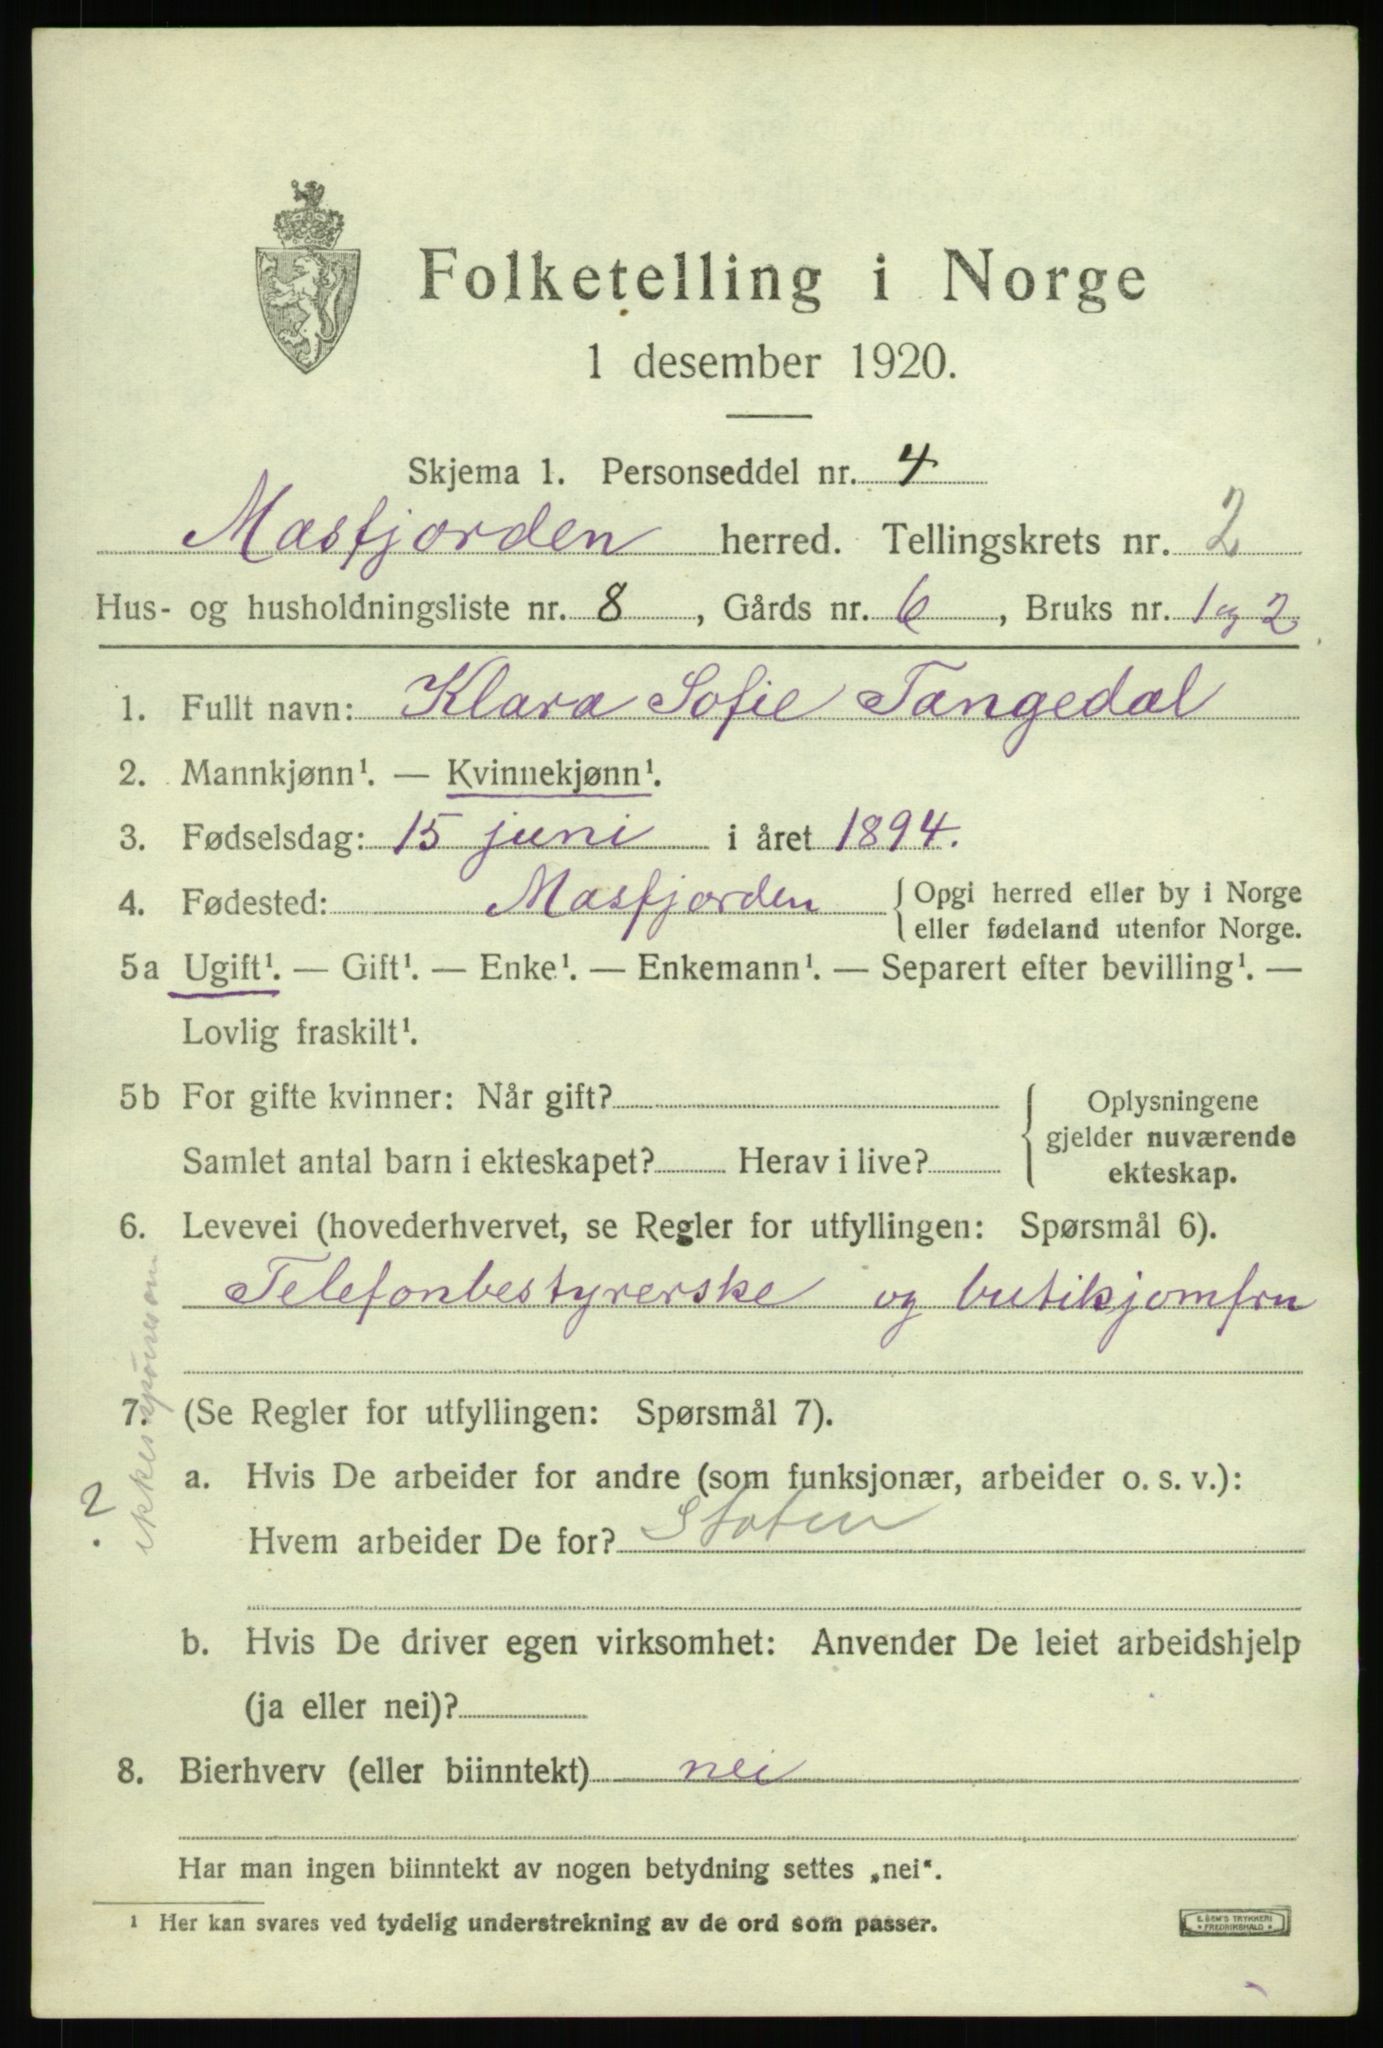 Folketelling i Norge
1 desember 1920.
Skjema 1. Personseddel nr. 4
Masfjorden herred. Tellingskrets nr. 2
Hus- og husholdningsliste nr. 8, Gårds nr. 6, Bruks nr. 1 og 2
1. Fullt navn: Klara Sofie Tangedal
2. Mannkjønn¹. — Kvinnekjønn¹.
3. Fødselsdag: 15 juni i året 1894.
4. Fødested: Masfjorden { Opgi herred eller by i Norge
eller fødeland utenfor Norge.
5a Ugift¹. — Gift¹. — Enke¹. — Enkemann¹. — Separert efter bevilling¹. —
Lovlig fraskilt¹.
5b For gifte kvinner: Når gift?
Samlet antal barn i ekteskapet? Herav i live?
{ Oplysningene
gjelder nuværende
ekteskap.
6. Levevei (hovederhvervet, se Regler for utfyllingen: Spørsmål 6).
Telefonbestyrerske og butikjomfru
7. (Se Regler for utfyllingen: Spørsmål 7).
a. Hvis De arbeider for andre (som funksjonær, arbeider o. s. v.):
Hvem arbeider De for? Staten
?
b. Hvis De driver egen virksomhet: Anvender De leiet arbeidshjelp
(ja eller nei)?
8. Bierhverv (eller biinntekt) nei
Har man ingen biinntekt av nogen betydning settes „nei“.
¹ Her kan svares ved tydelig understrekning av de ord som passer.
E. SEM'S TRYKKERI
* FREDRIKSHALD *